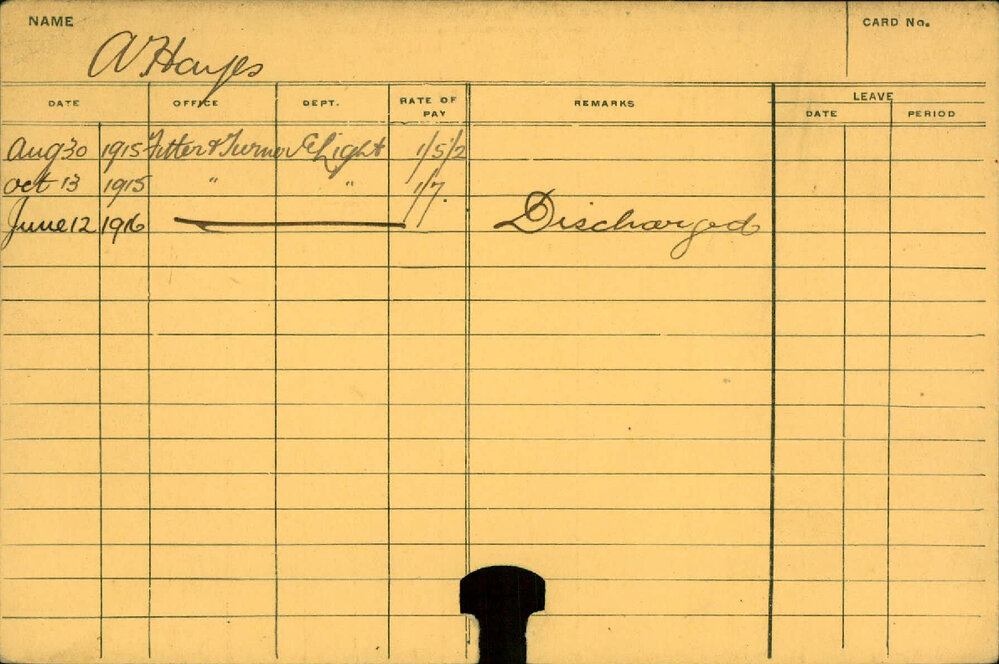 NAME
CARD No.
A Hayes
DATE OFFICE DEPT. RATE OF PAY REMARKS LEAVE
DATE PERIOD
Aug 30 1915 Fitter & Turner E Light 1/5/2
Oct 13 1915 " " 1/7.
June 12 1916 Discharged